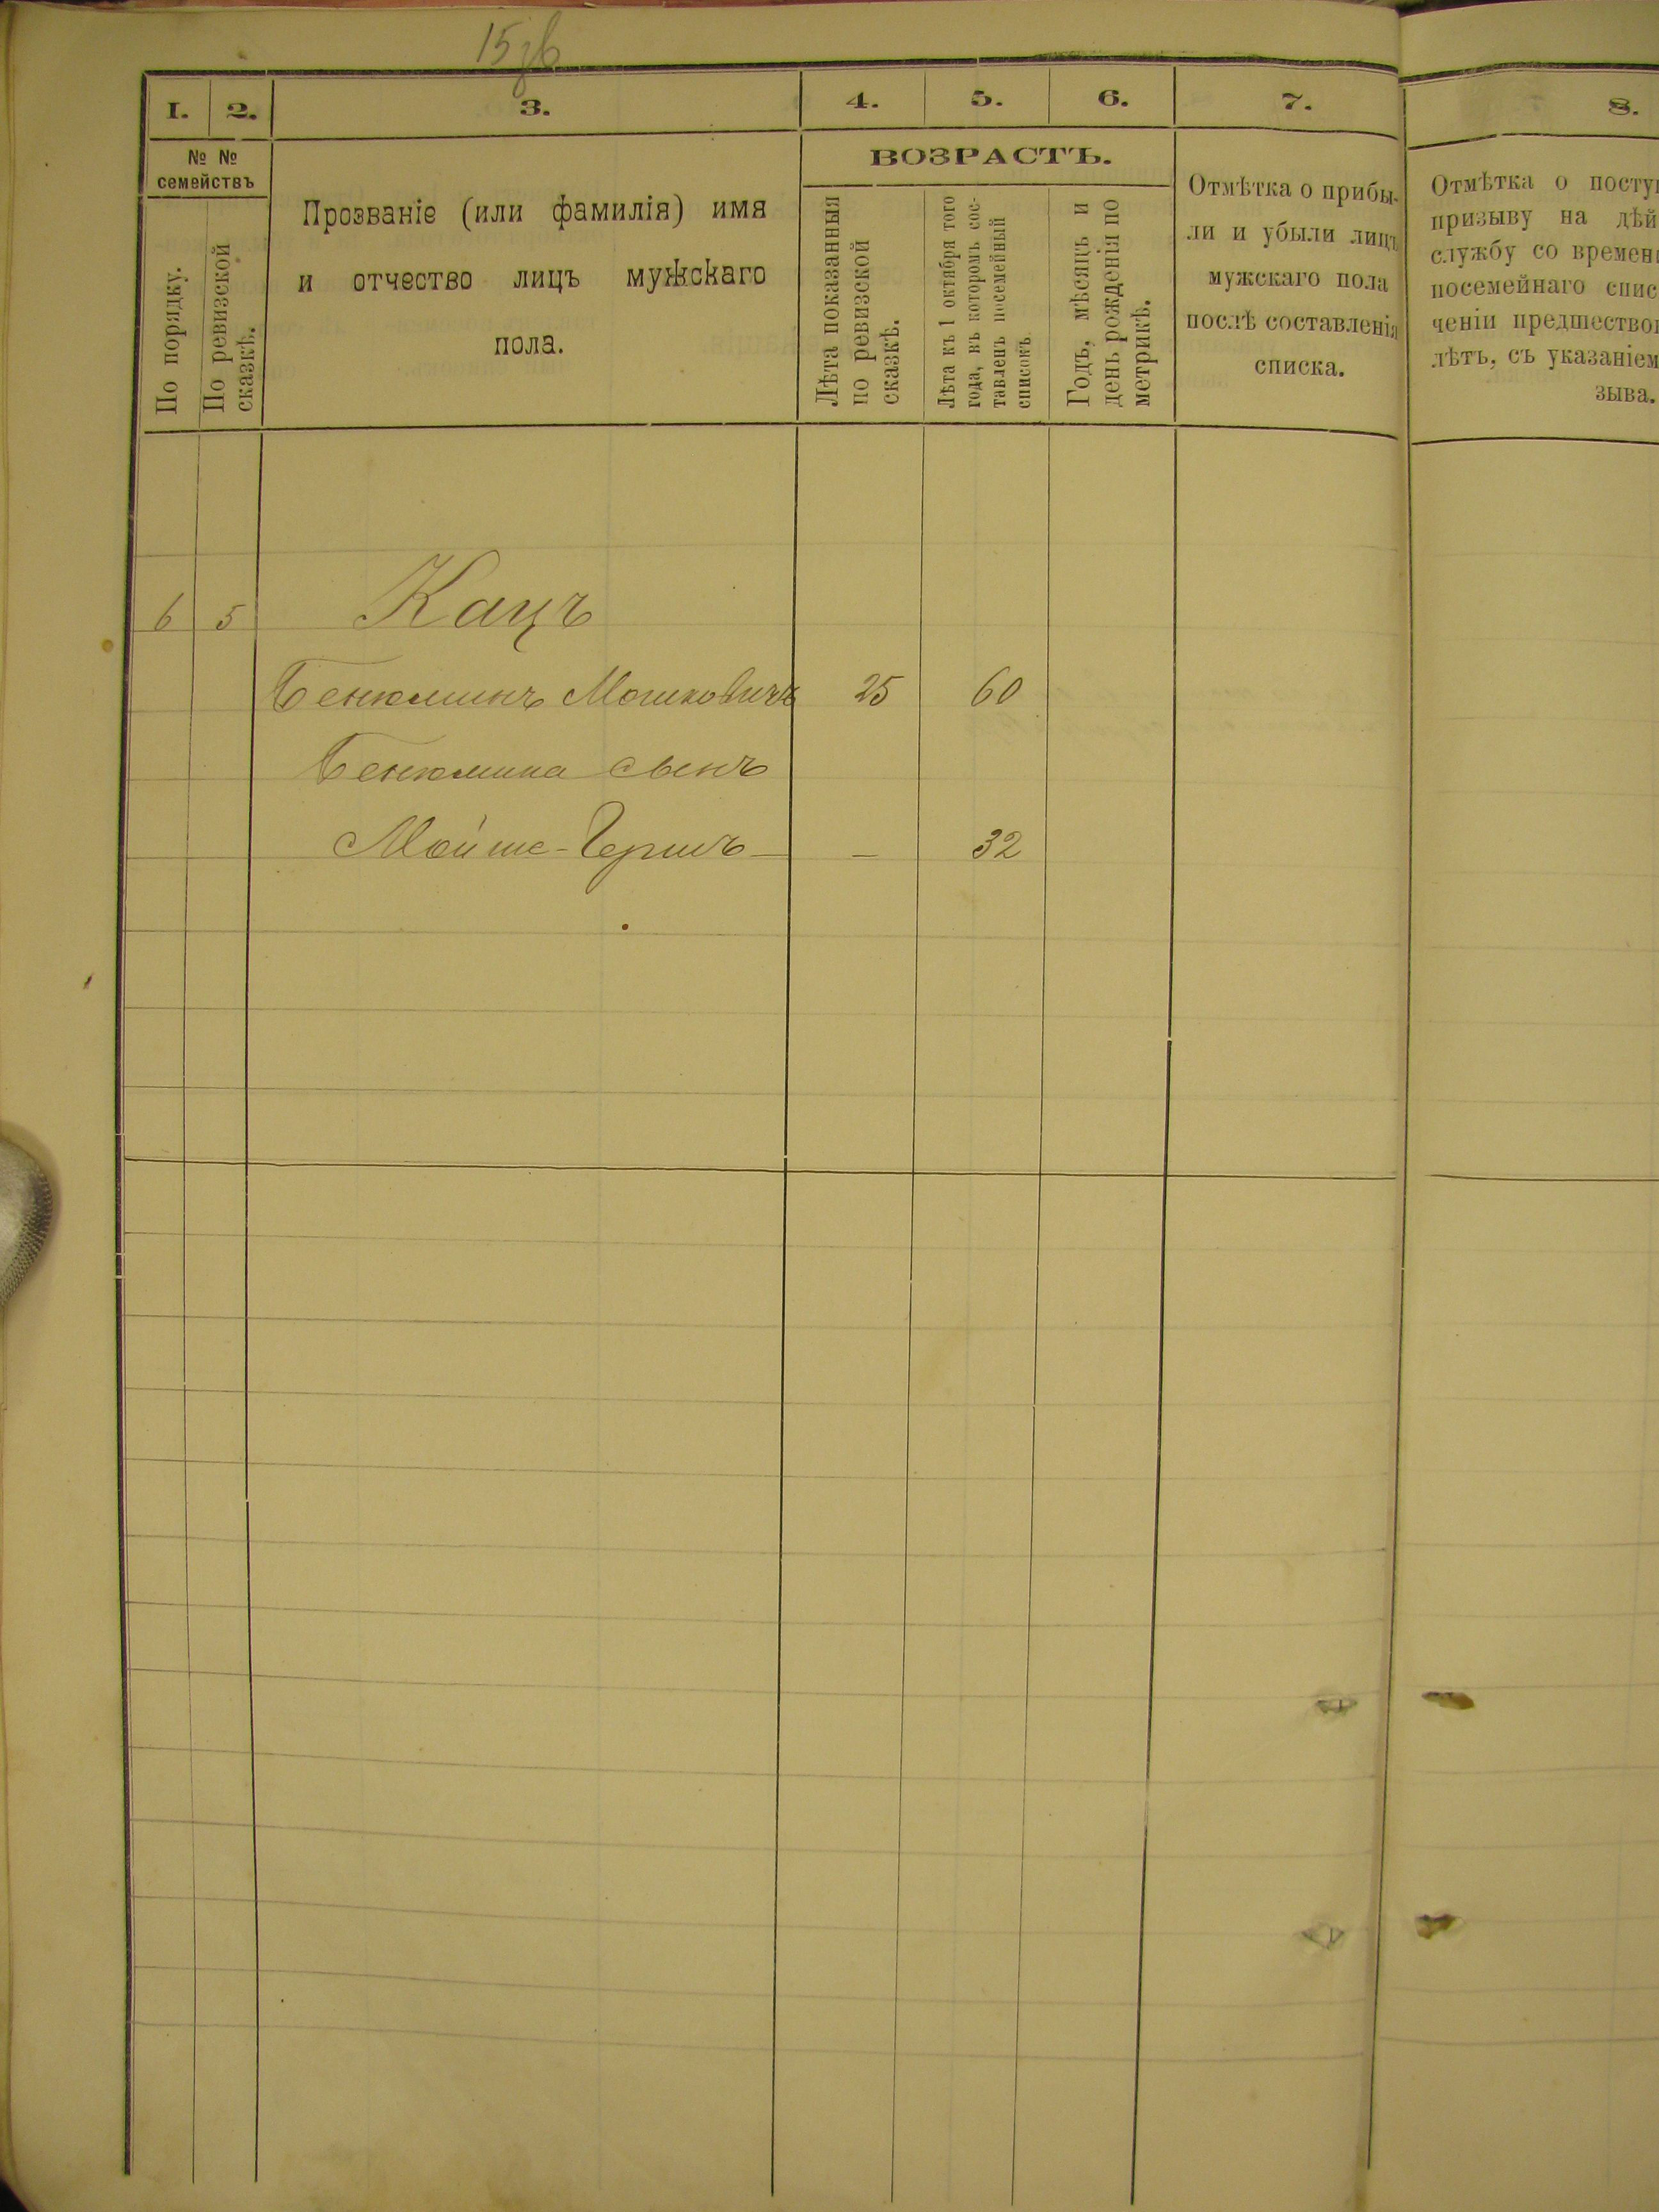 1. 2. 3. 4. 5. 6. 7. 8.
№ №
семействъ
По порядку.
По ревизской
сказкѣ.
Прозваніе (или фамилія) имя
и отчество лицъ мужскаго
пола.
ВОЗРАСТЪ.
Лѣта показанныя
по ревизской
сказкѣ.
Лѣта къ 1 октября того
года, въ которомъ сос-
тавленъ посемейный
списокъ
Годъ, мѣсяцъ и
день рожденія по
метрикѣ.
Отмѣтка о прибы-
ли и убыли лицъ
мужскаго пола
послѣ составленія
списка.
Отмѣтка о посту
призыву на дѣй
службу со времен
посемейнаго спис
ченіи предшество
лѣтъ, съ указаніем
зыва.
6 5 Кацъ
Бенюминъ Мошковичъ 25 60
Бенюмина сынъ
Мойше-Гершъ — — 32